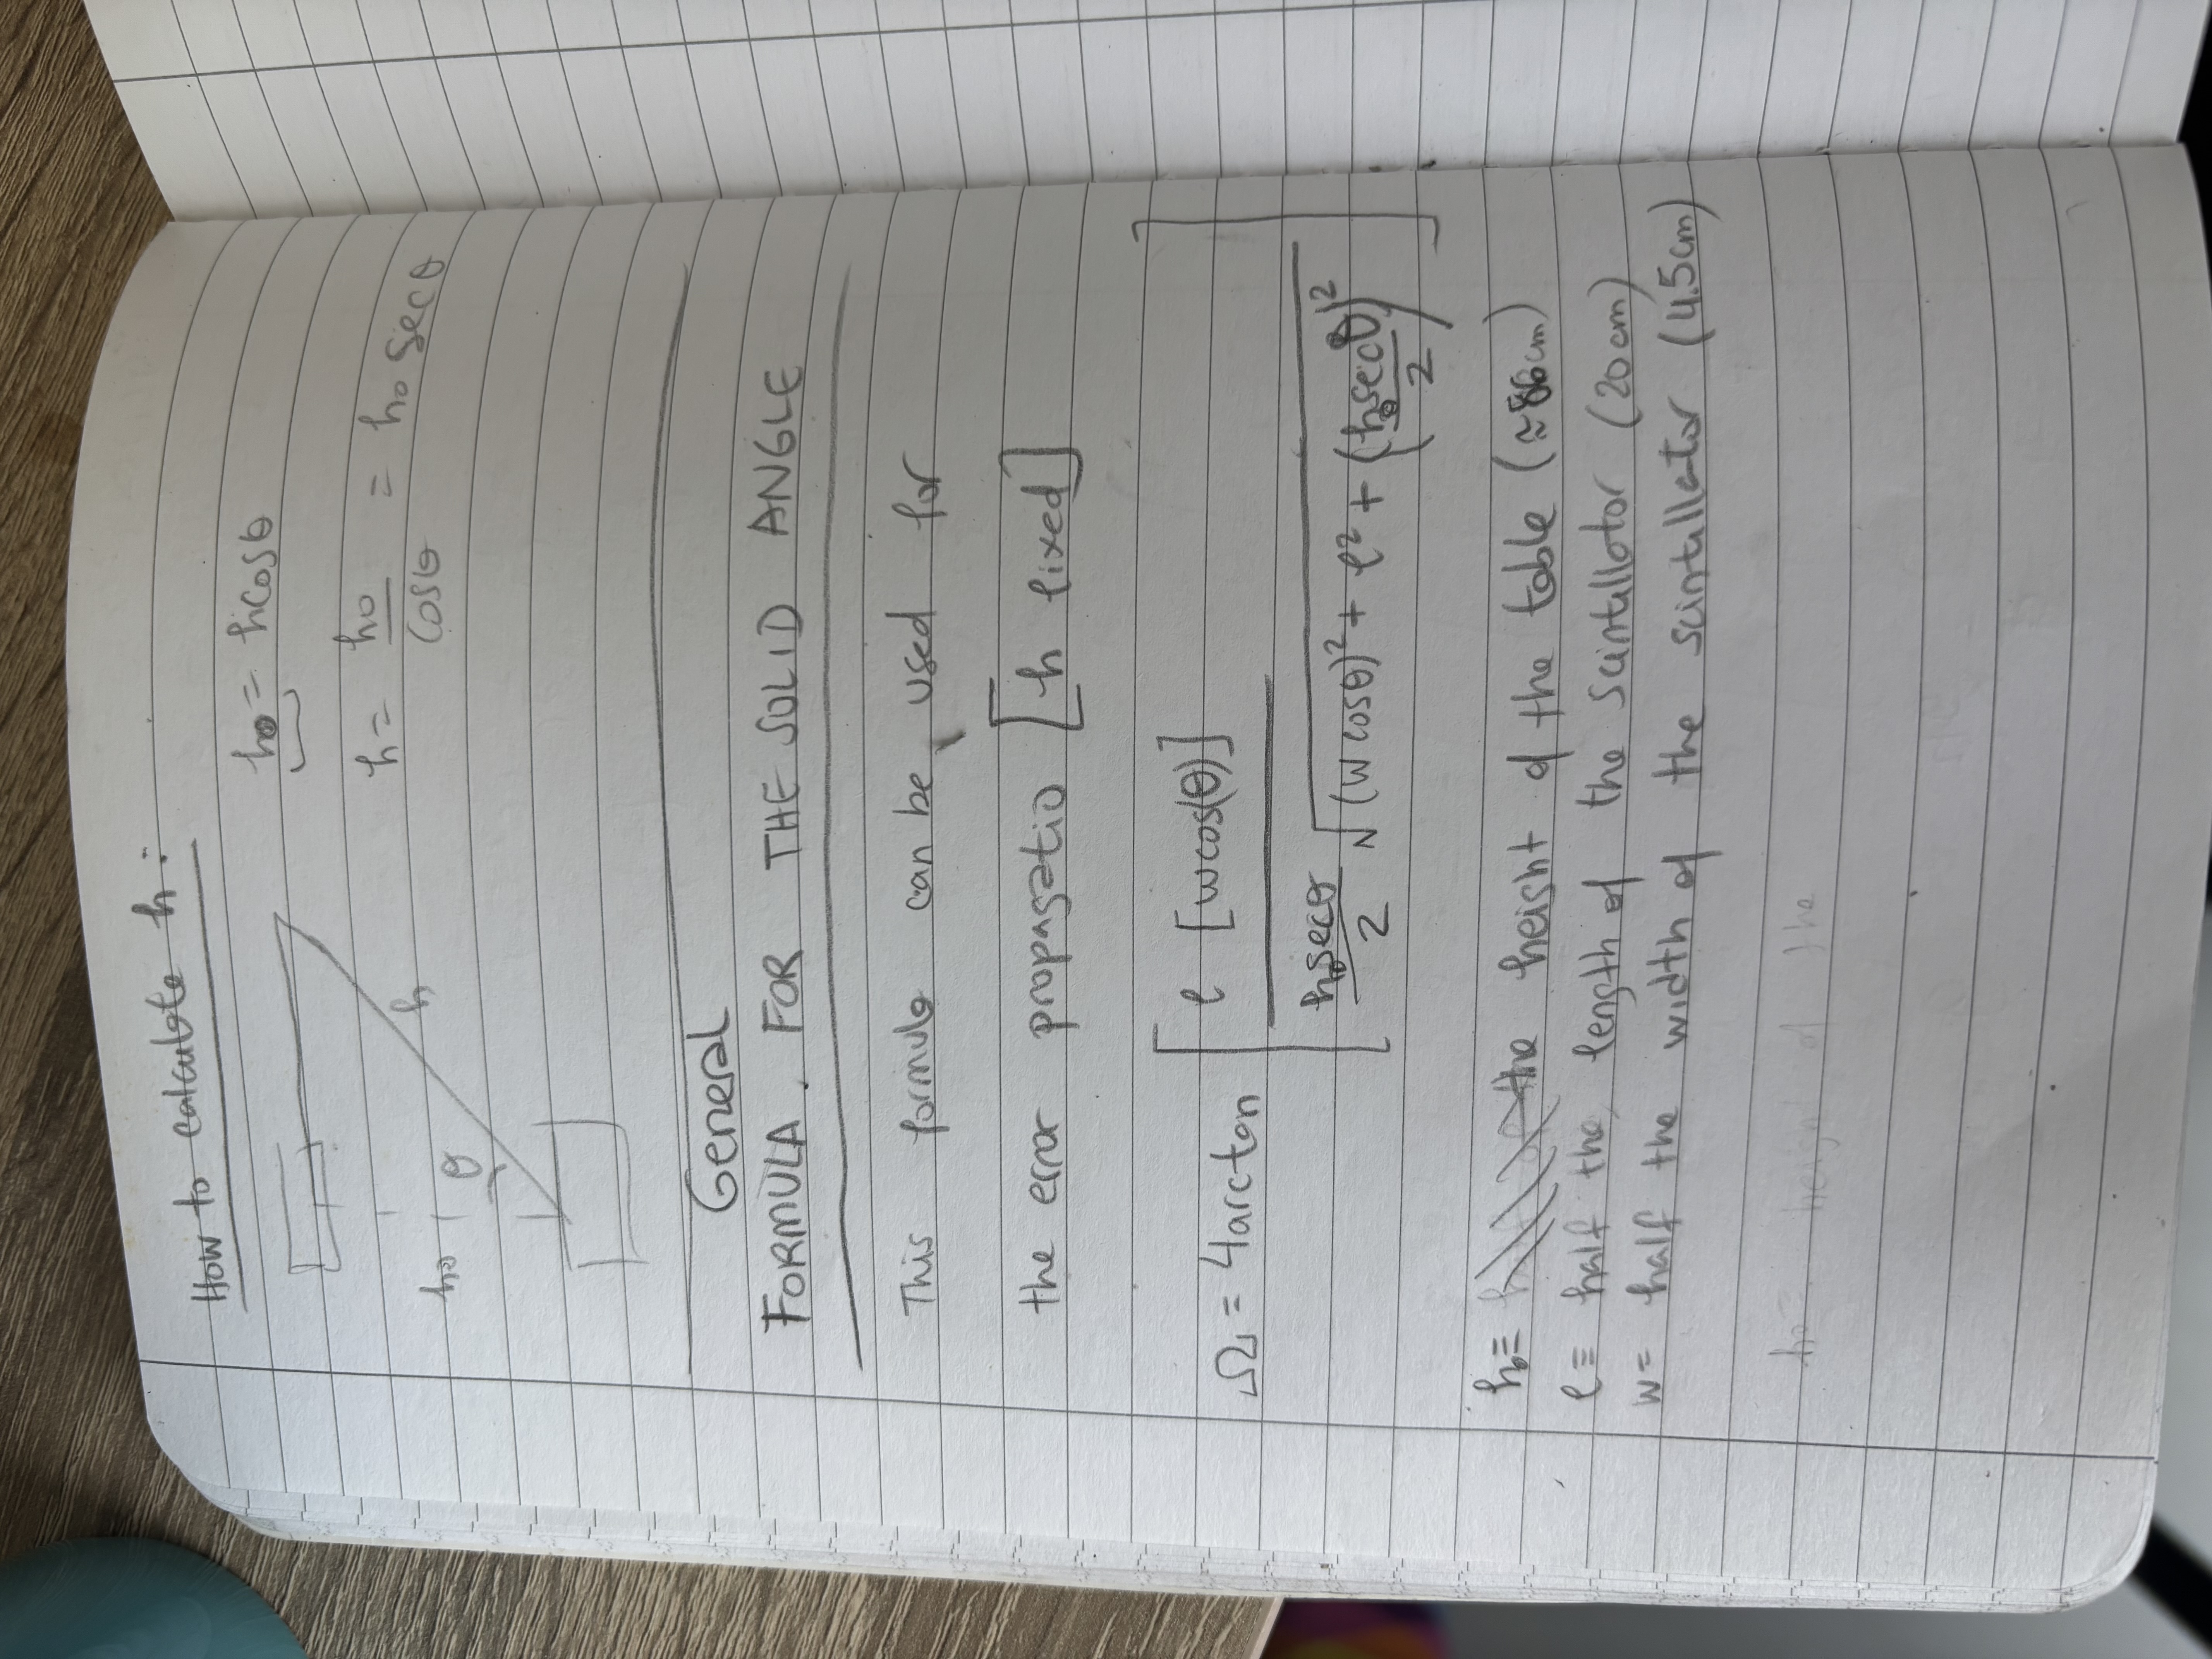 How to calculate h:
h₀ = hcosθ
h = h₀/cosθ = h₀ secθ
h₀ θ h
General
FORMULA. FOR THE SOLID ANGLE
This formula can be used for
the error propagatio [h fixed]
Ω = 4arctan [ ℓ [wcos(θ)] / ( h₀secθ/2 √( (w cosθ)² + ℓ² + (h₀secθ/2)² ) ) ]
h₀≡ the height of the table (≈86cm)
ℓ≡ half the length of the scintillator (20cm)
w= half the width of the scintillator (4.5cm)
h₀= height of the